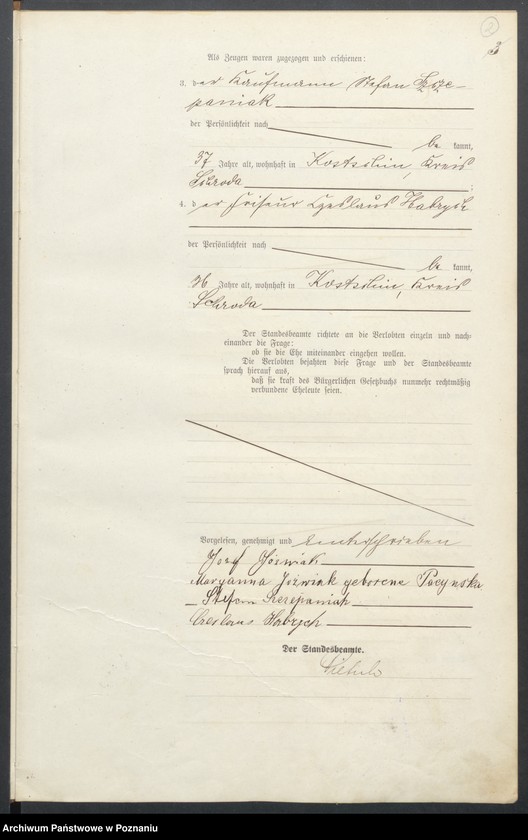 3
Als Zeugen waren zugezogen und erschienen:
3. der Kaufmann Stefan Szcze-
paniak
der Persönlichkeit nach
be kannt,
37 Jahre alt, wohnhaft in Kostschin, Kreis
Schroda ;
4. der Friseur Czeslaus Habrych
der Persönlichkeit nach
be kannt,
36 Jahre alt, wohnhaft in Kostschin, Kreis
Schroda
Der Standesbeamte richtete an die Verlobten einzeln und nach-
einander die Frage:
ob sie die Ehe miteinander eingehen wollen.
Die Verlobten bejahten diese Frage und der Standesbeamte
sprach hierauf aus,
daß sie kraft des Bürgerlichen Gesetzbuchs nunmehr rechtmäßig
verbundene Eheleute seien.
Vorgelesen, genehmigt und unterschrieben
Jozef Jóźwiak
Maryanna Jóźwiak geborene Pocynska
Stefan Szczepaniak
Czeslaus Habrych
Der Standesbeamte.
Archiwum Państwowe w Poznaniu